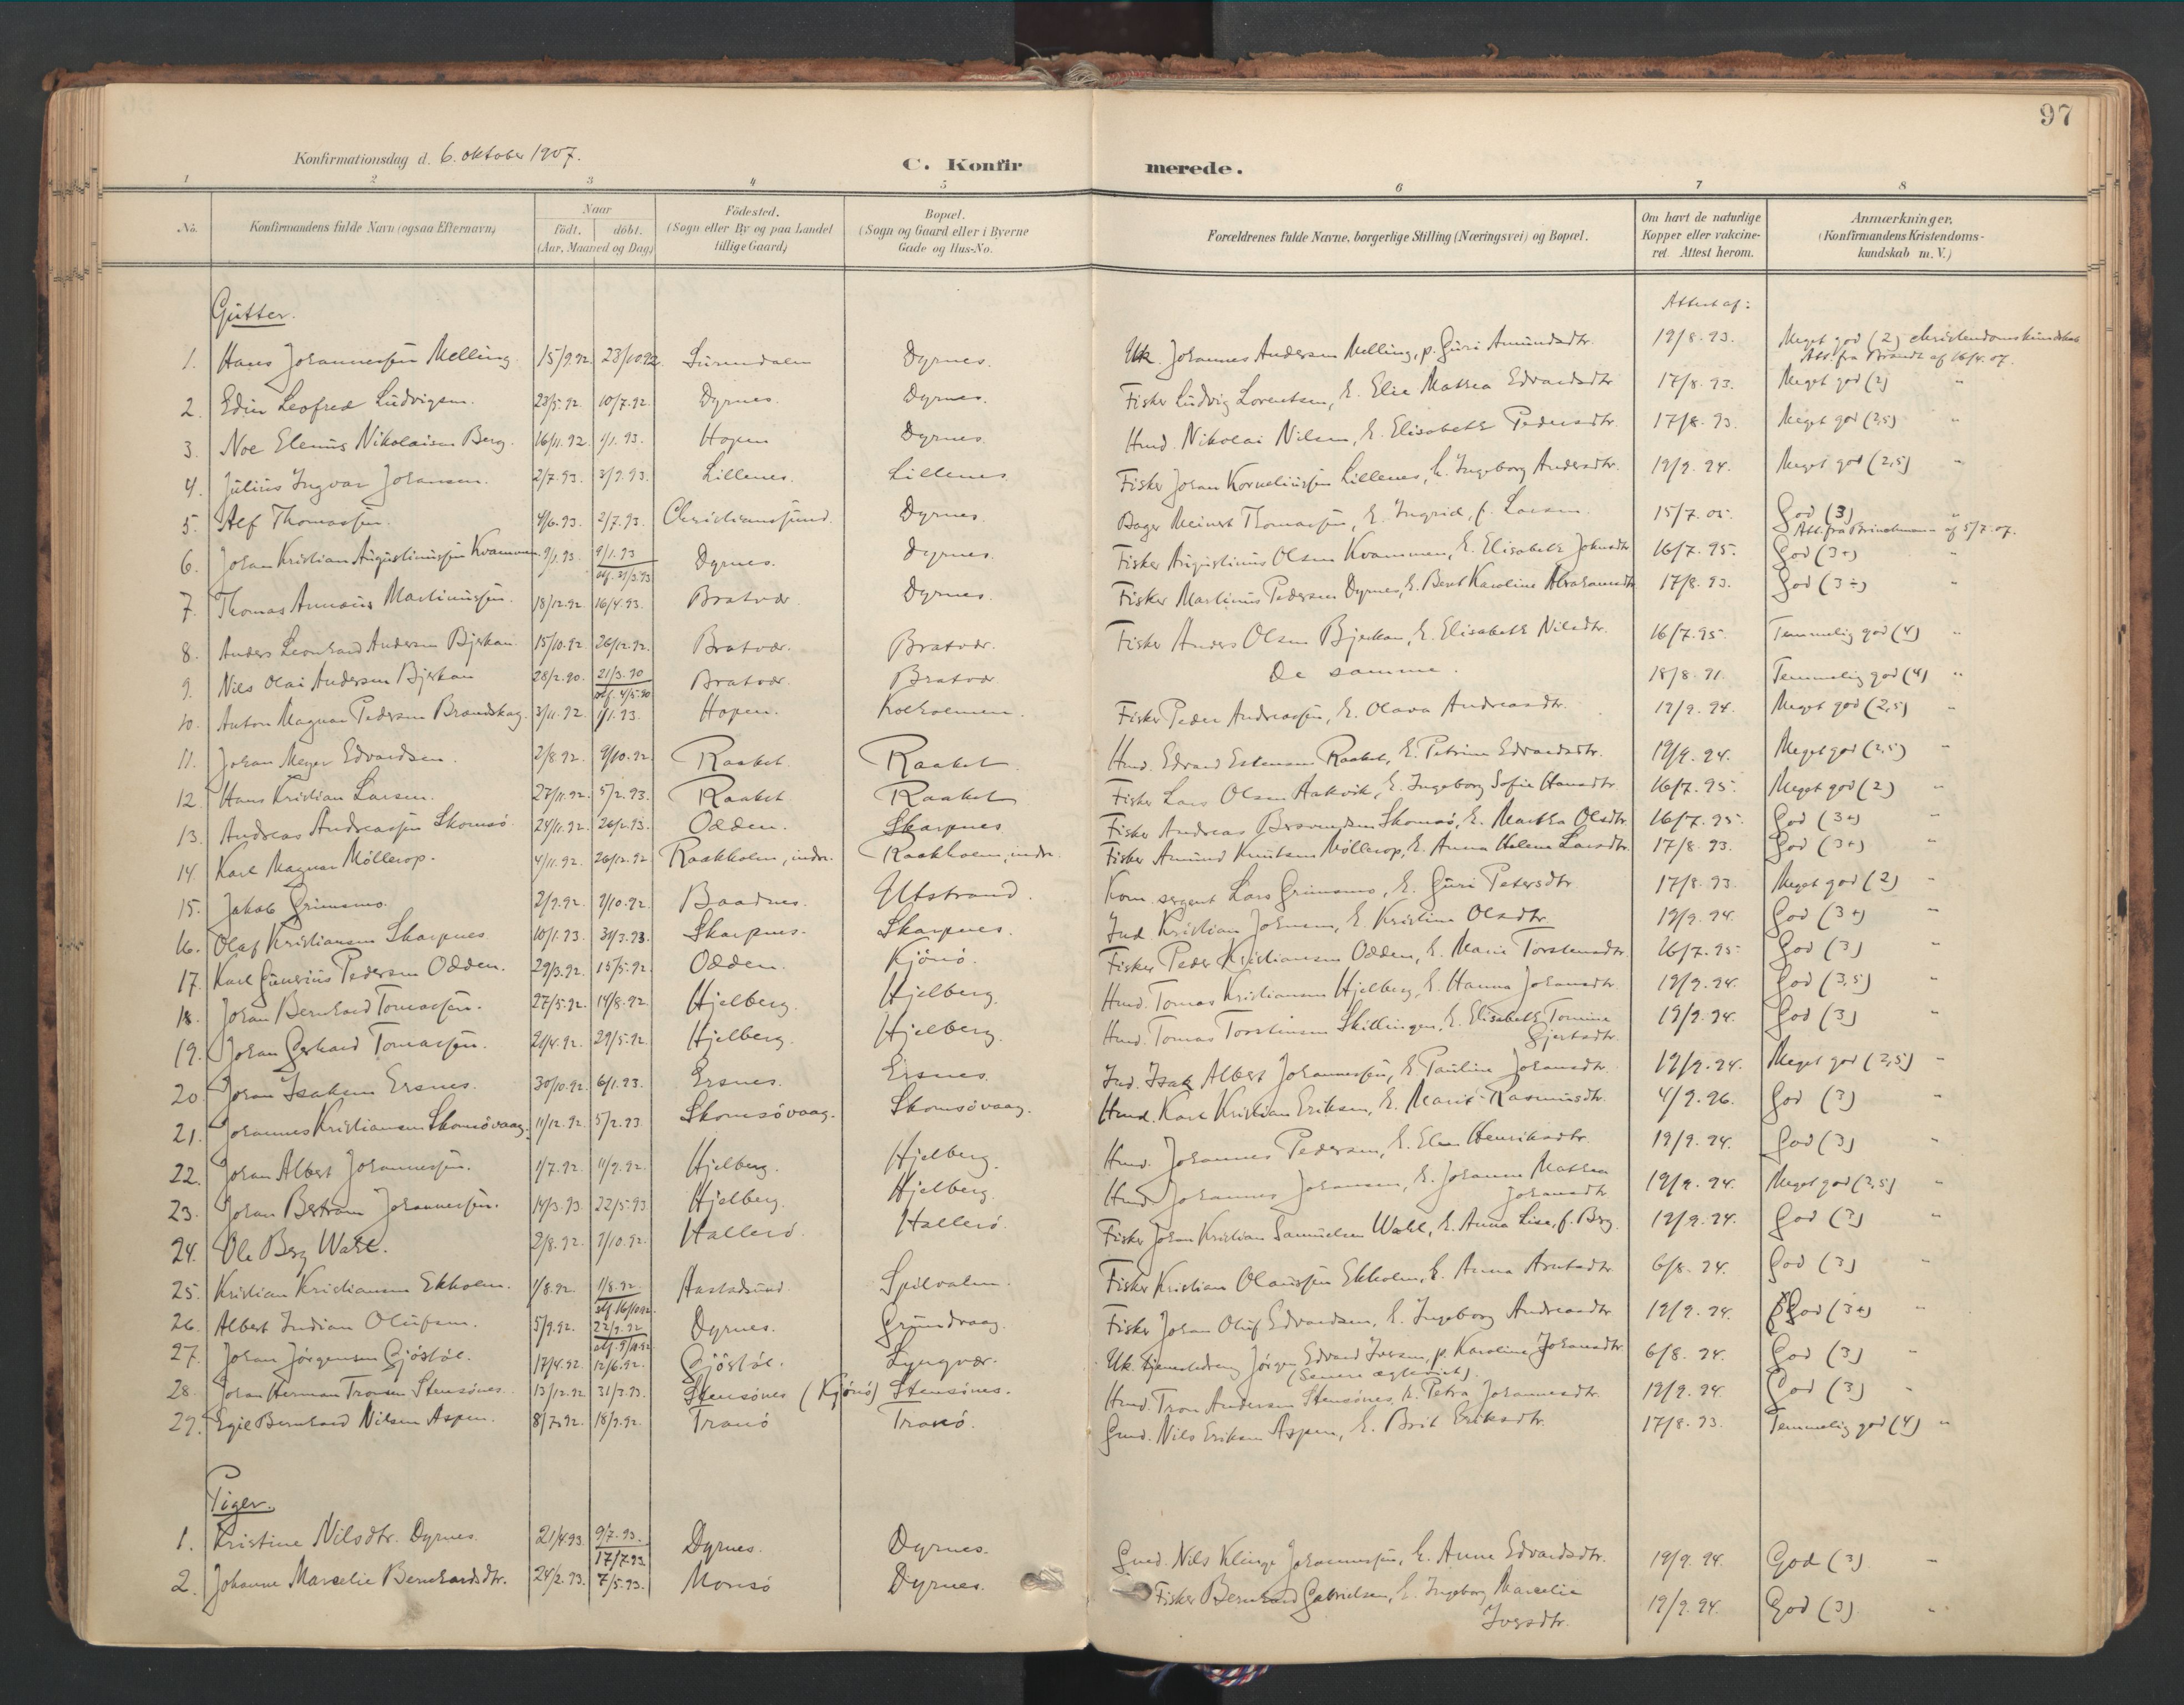 97
Konfirmationsdag d. 6. oktober 1907.
C. Konfirmerede.
1 2 3 4 5 6 7 8
No. | Konfirmandens fulde Navn (ogsaa Efternavn) | Naar födt. döbt. (Aar, Maaned og Dag) | Födested. (Sogn eller By og paa Landet tillige Gaard) | Bopæl. (Sogn og Gaard eller i Byerne Gade og Hus-No. | Forældrenes fulde Navne, borgerlige Stilling (Næringsvei) og Bopæl. | Om havt de naturlige Kopper eller vakcineret. Attest herom. | Anmærkninger. (Konfirmandens Kristendomskundskab m. V.)
Gutter.
Attest af:
1. Hans Johannessen Melling 15/9.92 23/10.92 Surendalen Dyrnes. Uk. Johannes Andersen Melling, p. Guri Amundsdtr. 19/8.93. Meget god (2) christendomskundskab
Att. fra Brandt af 16/4.07.
2. Edin Leofred Ludvigsen. 23/5.92. 10/7.92. Dyrnes. Dyrnes. Fisker Ludvig Lorentsen, h. Elie Mathea Edvardsdtr. 17/8.93. Meget god (2) "
3. Noe Elenius Nikolaisen Berg. 16/11.92 1/1.93. Hopen Dyrnes. Hmd. Nikolai Nilsen, h. Elisabeth Pedersdtr. 17/8.93. Meget god (2,5) "
4. Julius Ingvar Johansen. 2/7.93. 3/9.93. Lillenes. Lillenes Fisker Johan Korneliussen Lillenes, h. Ingeborg Andersdtr. 19/9.94. Meget god (2,5) "
5. Alf Thomassen. 4/6.93 2/7.93. Christianssund. Dyrnes. Bager Meinert Thomassen, h. Ingrid, f. Larsen. 15/7.05. God (3) "
Att. fra Brinchmann af 5/7.07.
6. Johan Kristian Augustinussen Kvammen. 9/1.93 9/1.93 stf. 21/3.93 Dyrnes. Dyrnes. Fisker Augustinus Olsen Kvammen, h. Elisabeth Johnsdtr. 16/7.95. God (3+) "
7. Thomas Annæus Martinussen. 18/12.92 16/4.93. Bratvær Dyrnes. Fisker Martinus Pedersen Dyrnes, h. Berit Karoline Abrahamsdtr. 17/8.93. God (3÷) "
8. Anders Leonhard Andersen Bjerkan. 15/10.92 26/12.92. Bratvær. Bratvær. Fisker Anders Olsen Bjerkan, h. Elisabeth Nilsdtr. 16/7.95. Temmelig god (4) "
9. Nils Olai Andersen Bjerkan 28/2.90. 21/3.90 stf. 4/5.90 Bratvær. Bratvær De samme. 18/8.91. Temmelig god (4) "
10. Anton Magnus Pedersen Brandskag. 3/11.92 1/1.93. Hopen. Kolholmen. Fisker Peder Andreassen, h. Olava Andreasdtr. 19/9.94. Meget god (2,5) "
11. Johan Meyer Edvardsen. 2/8.92. 9/10.92. Raaket. Raaket. Hmd. Edvard Estensen Raaket, h. Petrine Edvardsdtr. 19/9.94. Meget god (2,5) "
12. Hans Kristian Larsen. 27/11.92. 5/2.93. Raaket Raaket Fisker Lars Olsen Aakvik, h. Ingeborg Sofie Hansdtr. 16/7.95. Meget god (2) "
13. Andreas Andreassen Skomsö. 24/11.92. 26/2.93. Odden. Skarpnes. Fisker Andreas Skomsö, h. Martha Olsdtr. 16/7.95. God (3+) "
14 Karl Magnus Möllerop. 4/11.92. 26/12.92 Raakholm, indr. Raakholm, indr. Fisker Amund Knutsen Möllerop, h. Anna Helene Larsdtr. 17/8.93. God (3+) "
15. Jakob Grimsmo. 2/9.92. 2/10.92. Baadnes. Utstrand. Kom. sergent Lars Grimsmo, h. Guri Petersdtr. 17/8.93. Meget god (2) "
16. Olaf Kristiansen Skarpnes 10/1.93. 31/3.93. Skarpnes. Skarpnes. Ind. Kristian Johnsen, h. Kristine Olsdtr. 19/9.94. God (3+) "
17. Karl Gunerius Pedersen Odden. 29/3.92. 15/5.92. Odden. Kjönö. Fisker Peder Kristiansen Odden, h. Marie Torstensdtr. 16/7.95 God (3) "
18. Johan Bernhard Tomassen. 27/5.92. 14/8.92. Hjelberg. Hjelberg. Hmd. Tomas Kristiansen Hjelberg, h. Hanna Johansdtr. 19/9.94. God (3,5) "
19. Johan Gerhard Tomassen. 21/4.92. 29/5.92. Hjelberg. Hjelberg. Hmd. Tomas Torstensen Skillingen, h. Elisabeth Tomine Gjertsdtr. 19/9.94. God (3) "
20. Johan Isaksen Ersnes. 30/10.92. 6/1.93. Ersnes. Ersnes. Ind. Isak Albert Johannessen, h. Pauline Johansdtr. 19/9.94. Meget god (2,5) "
21. Johannes Kristiansen Skomsövaag. 11/12.92. 5/2.93 Skomsövaag. Skomsövaag. Hmd. Karl Kristian Eriksen, h. Marit Rasmusdtr. 4/9.96. God (3) "
22. Johan Albert Johannessen. 1/7.92. 11/9.92. Hjelberg. Hjelberg. Hmd. Johannes Pedersen, h. Elen Henriksdtr. 19/9.94. God (3) "
23. Johan Bertram Johannessen. 14/3.93. 22/5.93 Hjelberg Hjelberg. Hmd. Johannes Johansen, h. Johanna Mathea Johansdtr. 19/9.94. Meget god (2,5) "
24. Ole Berg Wahl. 2/8.92. 2/10.92. Hallerö. Hallerö. Fisker Johan Kristian Samuelsen Wahl, h. Anna Lise, f. Berg. 19/9.94. God (3) "
25. Kristian Kristiansen Ekholm. 1/8.92. 1/8.92 stf. 16/10.92. Hastadsund. Spilvalen. Fisker Kristian Olaussen Ekholm, h. Anna Arntsdtr. 6/8.94. God (3) "
26. Albert Indian Olufsen. 5/9.92. 22/9.92 stf. 9/10.92 Dyrnes. Grundvaag. Fisker Johan Oluf Edvardsen, h. Ingeborg Andreasdtr. 19/9.94. God (3+) "
27. Johan Jörgensen Gjöstöl. 17/4.92 12/6.92. Gjöstöl. Lyngvær. Uk. tjenestedreng Jörgen Edvard Iversen, p. Karoline Johansdtr. (Senere ægteviet). 6/8.94. God (3) "
28. Johan Herman Tronsen Stensönes. 13/12.92 31/3.93. Stensönes (Kjönö) Stensönes. Hmd. Tron Andersen Stensönes, h. Petra Johannesdtr. 19/9.94. God (3) "
29. Egil Bernhard Nilsen Aspen. 8/7.92. 18/9.92. Tranö Tranö. Gmd. Nils Eriksen Aspen, h. Brit Eriksdtr. 17/8.93. Temmelig god (4) "
Piger.
1. Kristine Nilsdtr. Dyrnes. 21/4.93. 9/7.93. 17/7.93. Dyrnes. Dyrnes. Gmd. Nils Klinge Johannessen, h. Anne Edvardsdtr. 19/9.94. God (3) "
2. Johanne Marcelie Bernhardsdtr. 24/2.93. 7/5.93. Monsö Dyrnes. Fisker Bernhard Gabrielsen, h. Ingeborg Marcelie Iversdtr. 19/9.94. God (3) "